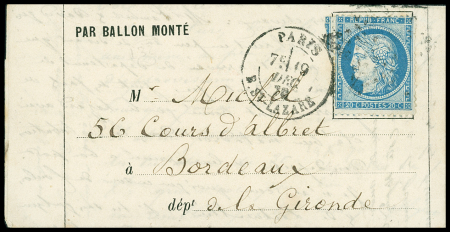 PAR BALLON MONTÉ
PARIS
R. ST-LAZARE
REPUB. FRANC.
20 C. POSTES 20 C.
Mr
56 Cours d'albret
à Bordeaux
dépt de la Gironde